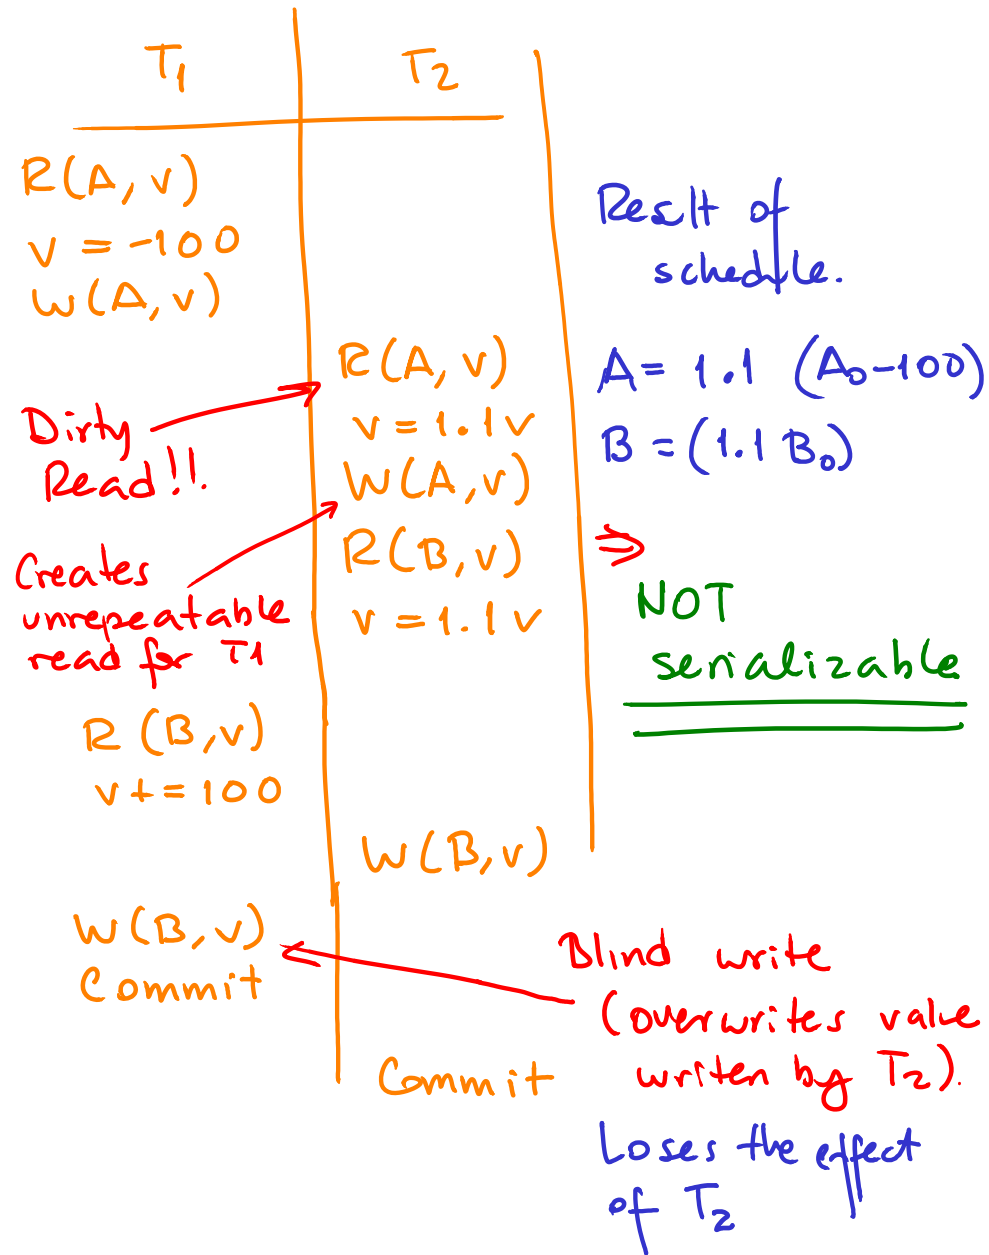 T1
T2
R(A, v)
v = -100
W(A, v)
R(A, v)
v = 1.1 v
W(A, v)
R(B, v)
v = 1.1 v
R (B, v)
v += 100
W(B, v)
W(B, v)
Commit
Commit
Dirty
Read!!.
Creates
unrepeatable
read for T1
Result of
schedule.
A = 1.1 (A0-100)
B = (1.1 B0)
⇒
NOT
serializable
Blind write
(overwrites value
writen by T2).
Loses the effect
of T2